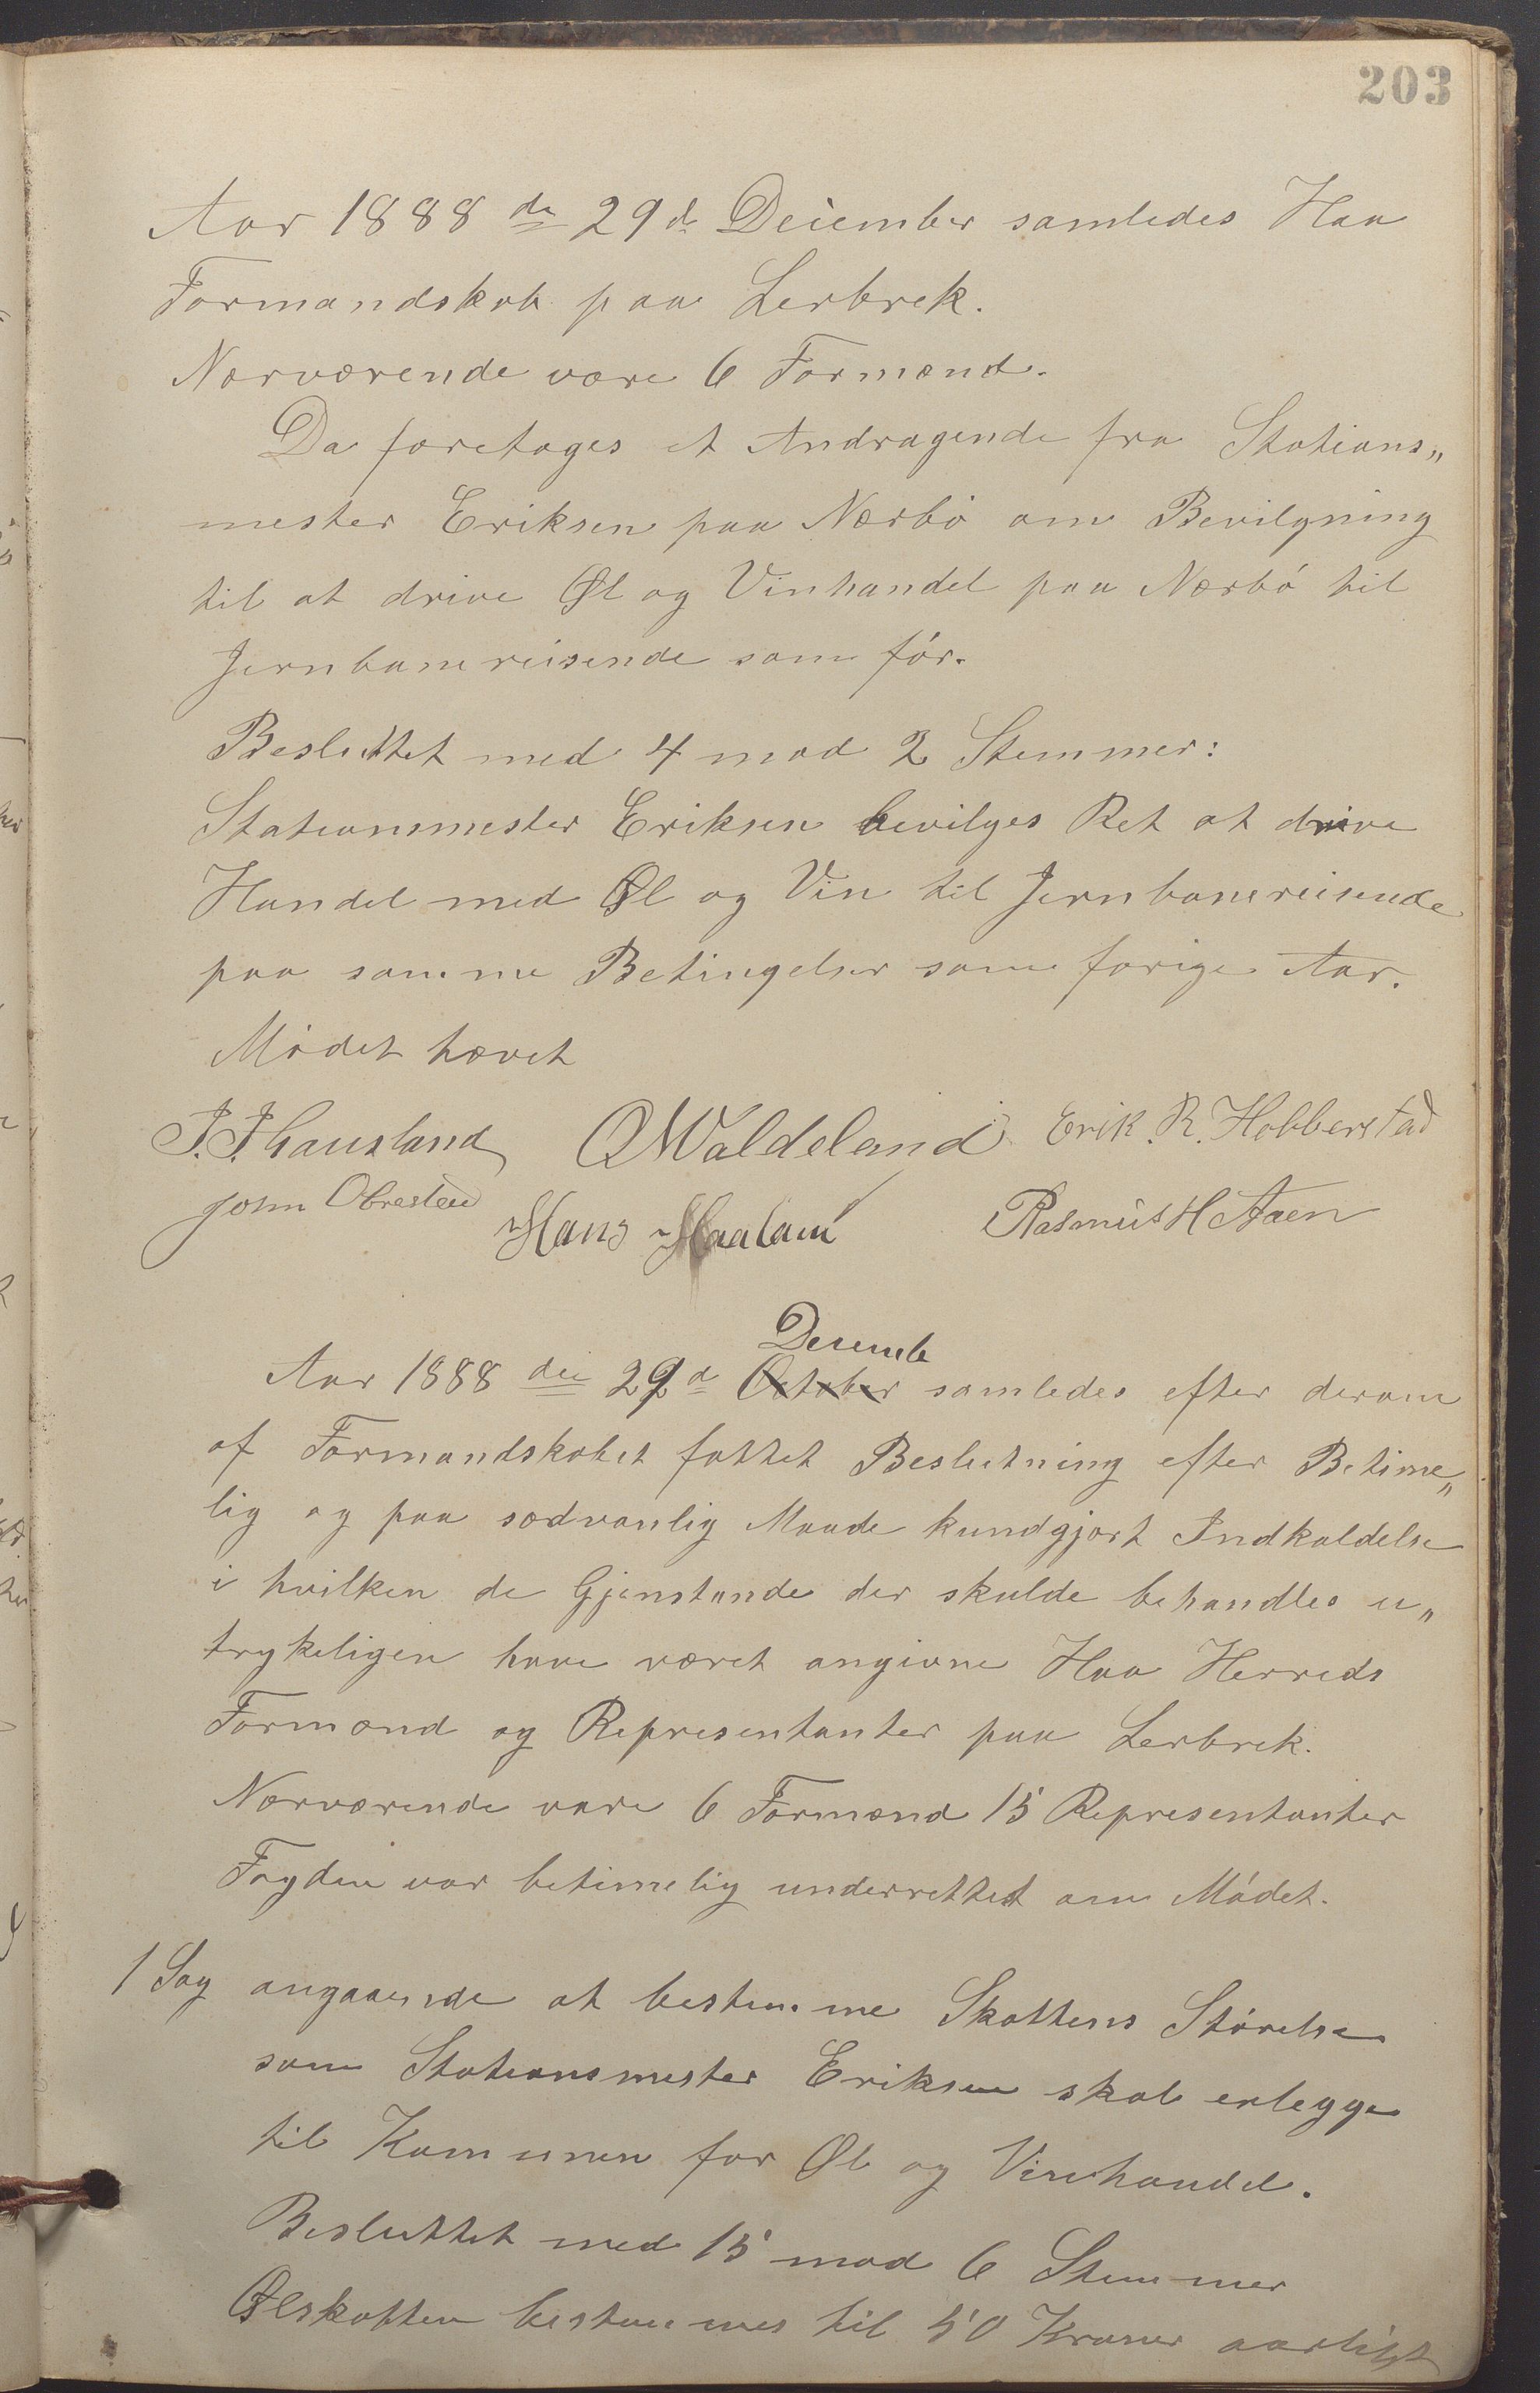 203
Aar 1888 den 29de Deiember samledes Haa
Formandskab paa Lerbrek.
Nærværende vare 6 Formænd.
Da foretoges et Andragende fra Stations„
mester Eriksen paa Nærbö om Bevilgning
til at drive Øl og Vinhandel paa Nærbó til
Jernbanereisende som fór.
Besluttet med 4 mod 2 Stemmer:
Stationsmester Eriksen bevilges Ret at drive
Handel med Øl og Vin til Jernbanereisende
paa samme Betingelser som forige Aar.
Mödet hævet
J. J. hausland OWaldeland Erik. R. Hobberstad
John Obrestad Hans Haaland Rasmus H Aaen
Decemb
Aar 1888 den 29d October samledes efter derom
af Formandskabet fattet Beslutning efter Betime„
lig og paa sædvanlig Maade kundgjort Indkaldelse
i hvilken de Gjenstande der skulde behandles u„
trykeligen have været angivne Haa Herreds
Formænd og Representanter paa Lerbrek.
Nærværende vare 6 Formænd 15 Representanter
Fogden var betimelig underrettet om Mödet.
1 Sag angaaende at bestemme Skattens Störelse
som Stationsmester Eriksen skal erlegge
til Komunen for Øl og Vinhandel.
Besluttet med 15 mod 6 Stemmer
Ølskatten bestemmes til 50 Kroner aarligt